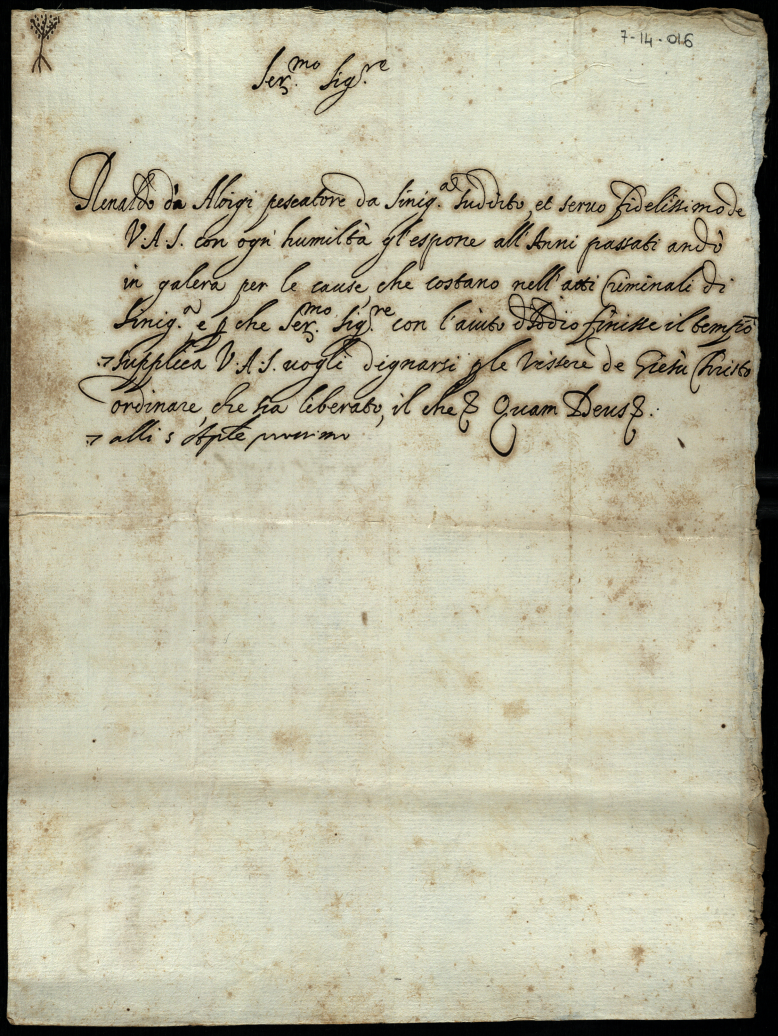 7-14-016
Ser.mo Sig.re
Renaldo da Aloigi pescatore da Sinig.a suddito, et servo fidelissimo de
V.A.S. con ogni humiltà gl'espone all'Anni passati andò
in galera per le cause, che costano nell'atti Criminali di
Sinig.a e p che Ser.mo Sig.re con l'aiuto d'Iddio finisse il tempo
supplica V.A.S. uogli dignarsi p le Vissere de Giesu Christo
ordinare, che sia liberato, il che Quam Deus
alli 5 Aple prossimo